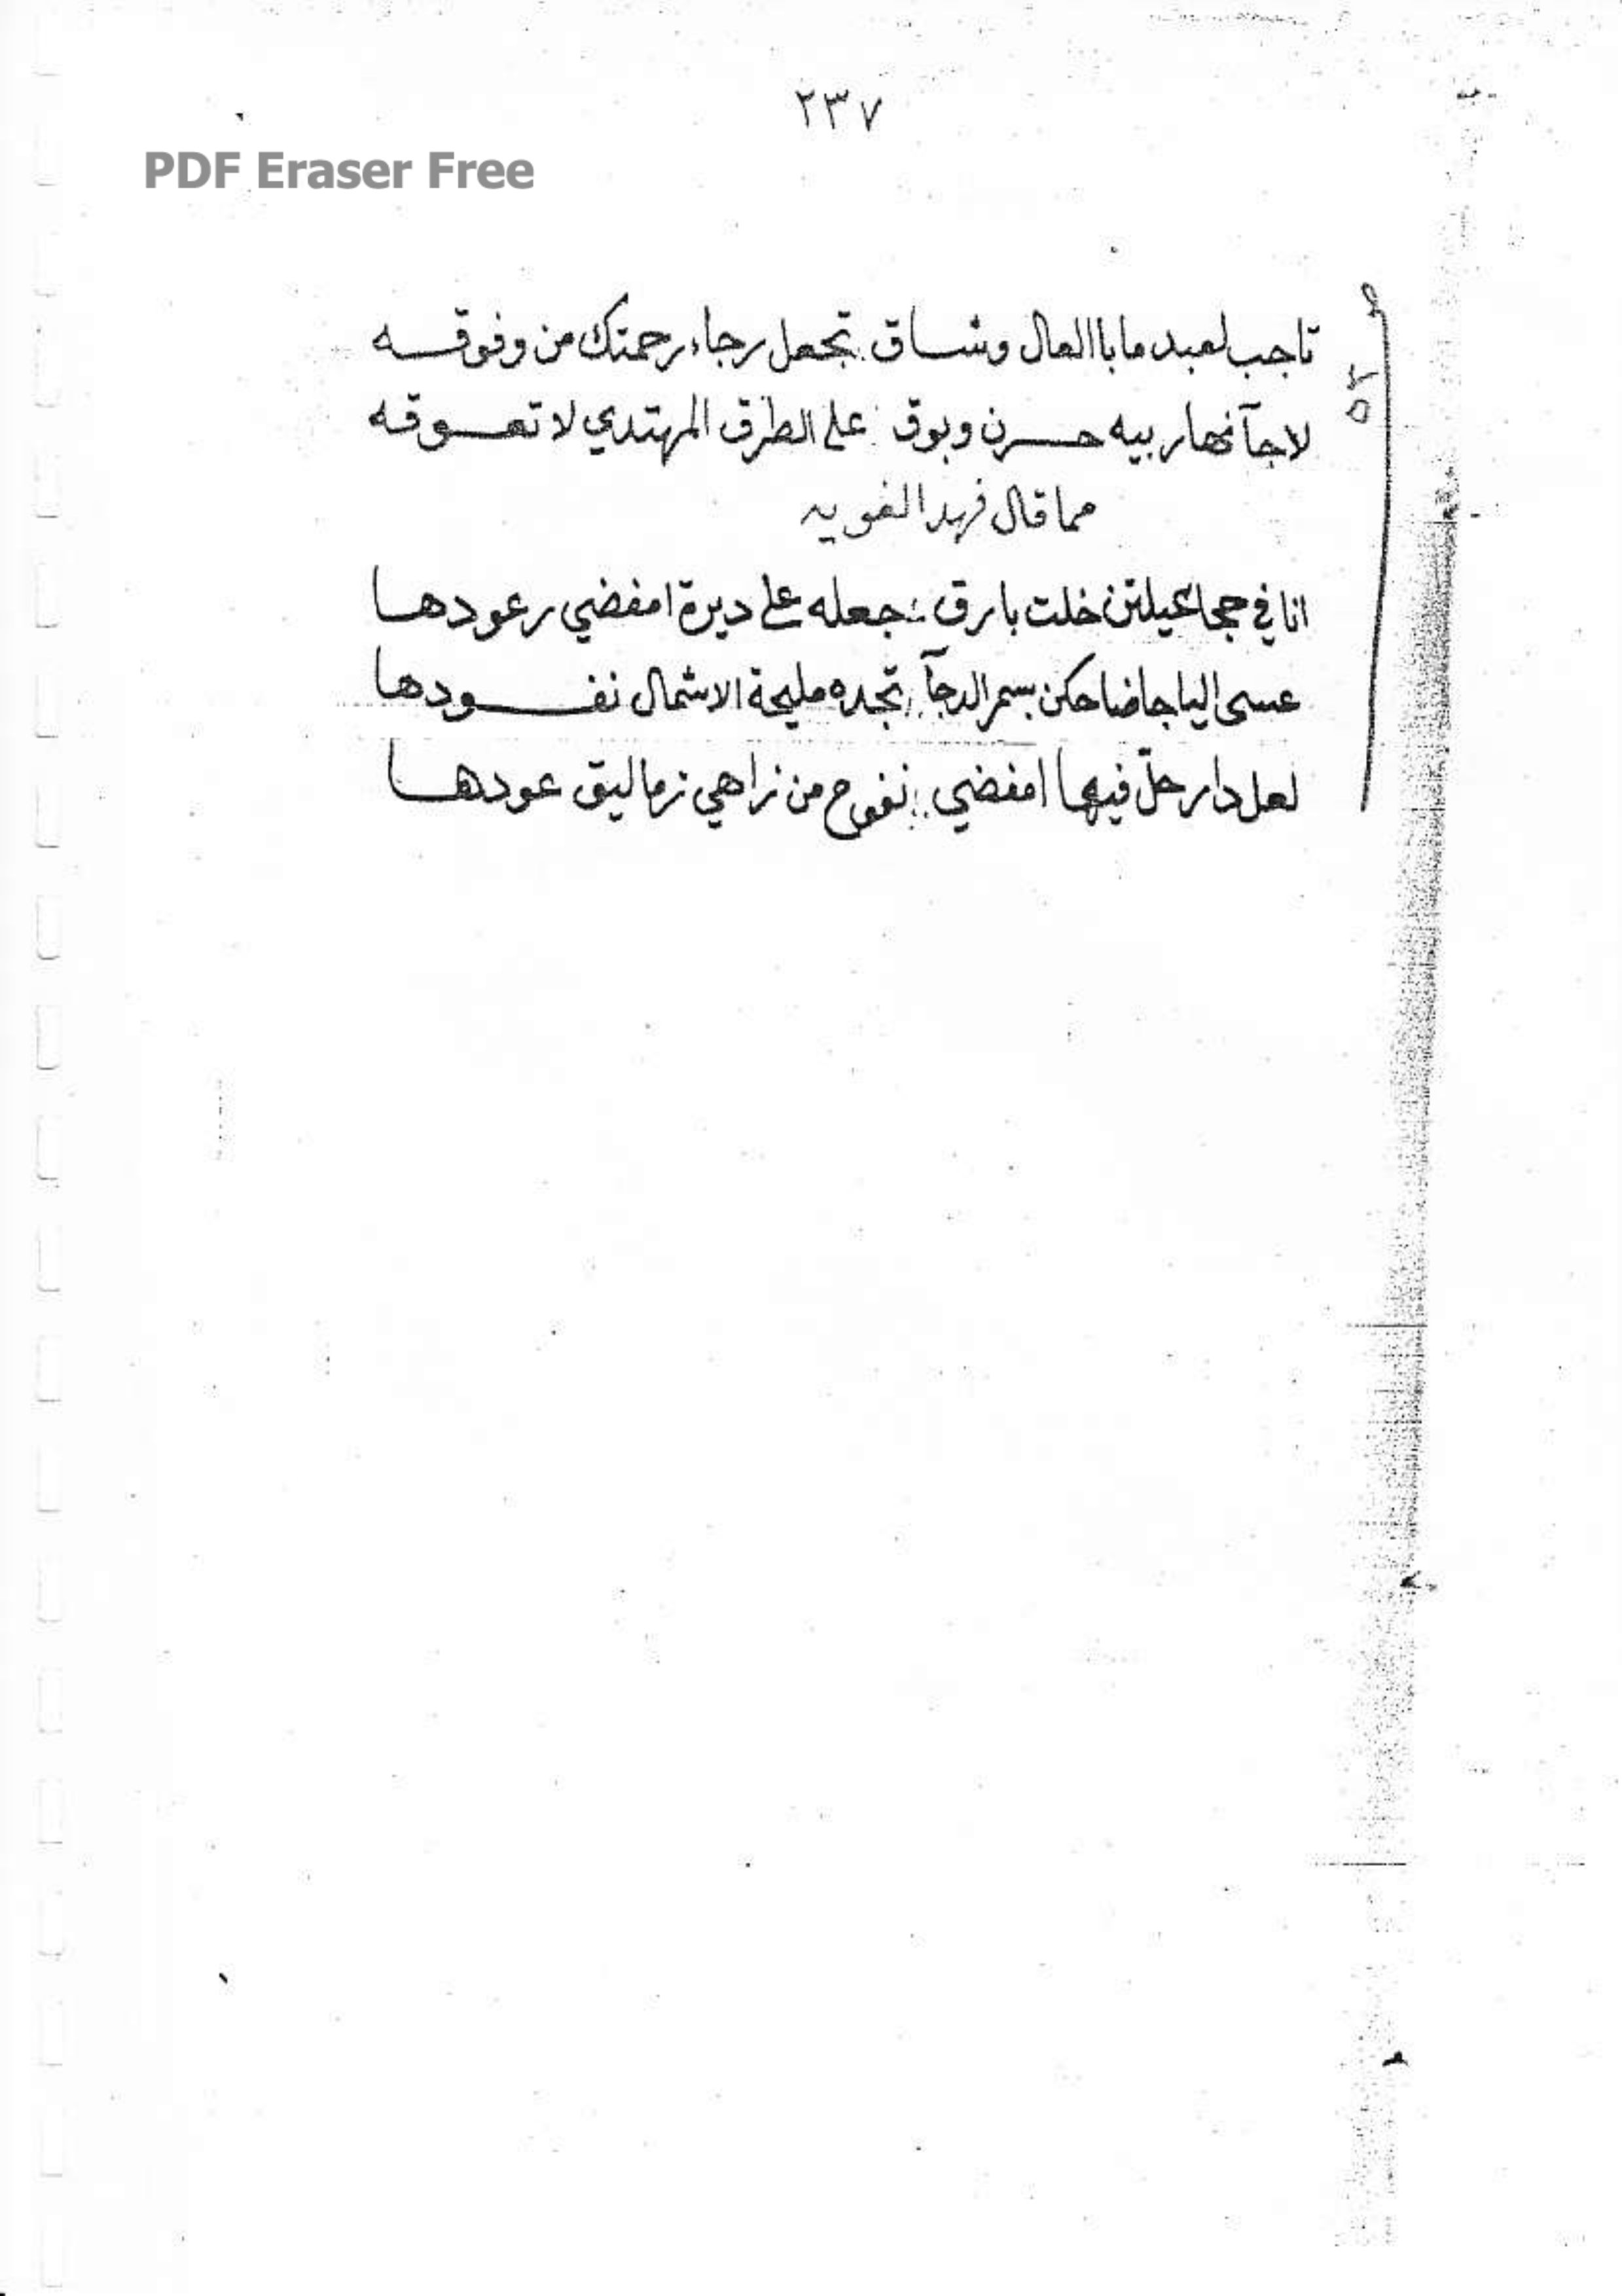 ٢٣٧
PDF Eraser Free
تاجب لعبد مابا العال وشاق تجعل رجاء رحمتك من وفوقه
لاجآ نهار بيه حزن وبوق على الطرق المهتدي لا تعوقه
مما قال فهد الفويه
انا في حجا خلت بارق جعله على ديرة امفضي رعودها
عسى اليا جا ضاحكن بسمر الدجآ تجده مليحة الاشمال نفودها
لعل دار حلّ فيها امفضي نفوح من زاهي زماليق عودها